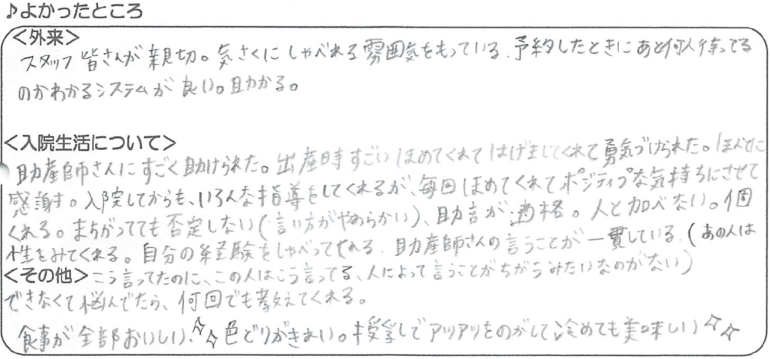 ♪よかったところ
<外来>
スタッフ皆さんが親切。気さくにしゃべれる雰囲気をもっている。予約したときにあと何人待ってる
のかわかるシステムが良い。助かる。
<入院生活について>
助産師さんにすごく助けられた。出産時すごいほめてくれてはげましてくれて勇気づけられた。ほんとに
感謝。入院してからも、いろんな指導をしてくれるが、毎回ほめてくれてポジティブな気持ちにさせて
くれる。まちがってても否定しない(言い方がやわらかい)、助言が適格。人と比べない。個
性をみてくれる。自分の経験をしゃべってくれる。助産師さんの言うことが一貫している。(あの人は
<その他>こう言ってたのに、この人はこう言ってる、人によって言うことがちがうみたいなのがない)
できなくて悩んでたら、何回でも教えてくれる。
食事が全部おいしい。色どりがきれい。授乳してアツアツをのがして冷めても美味しい